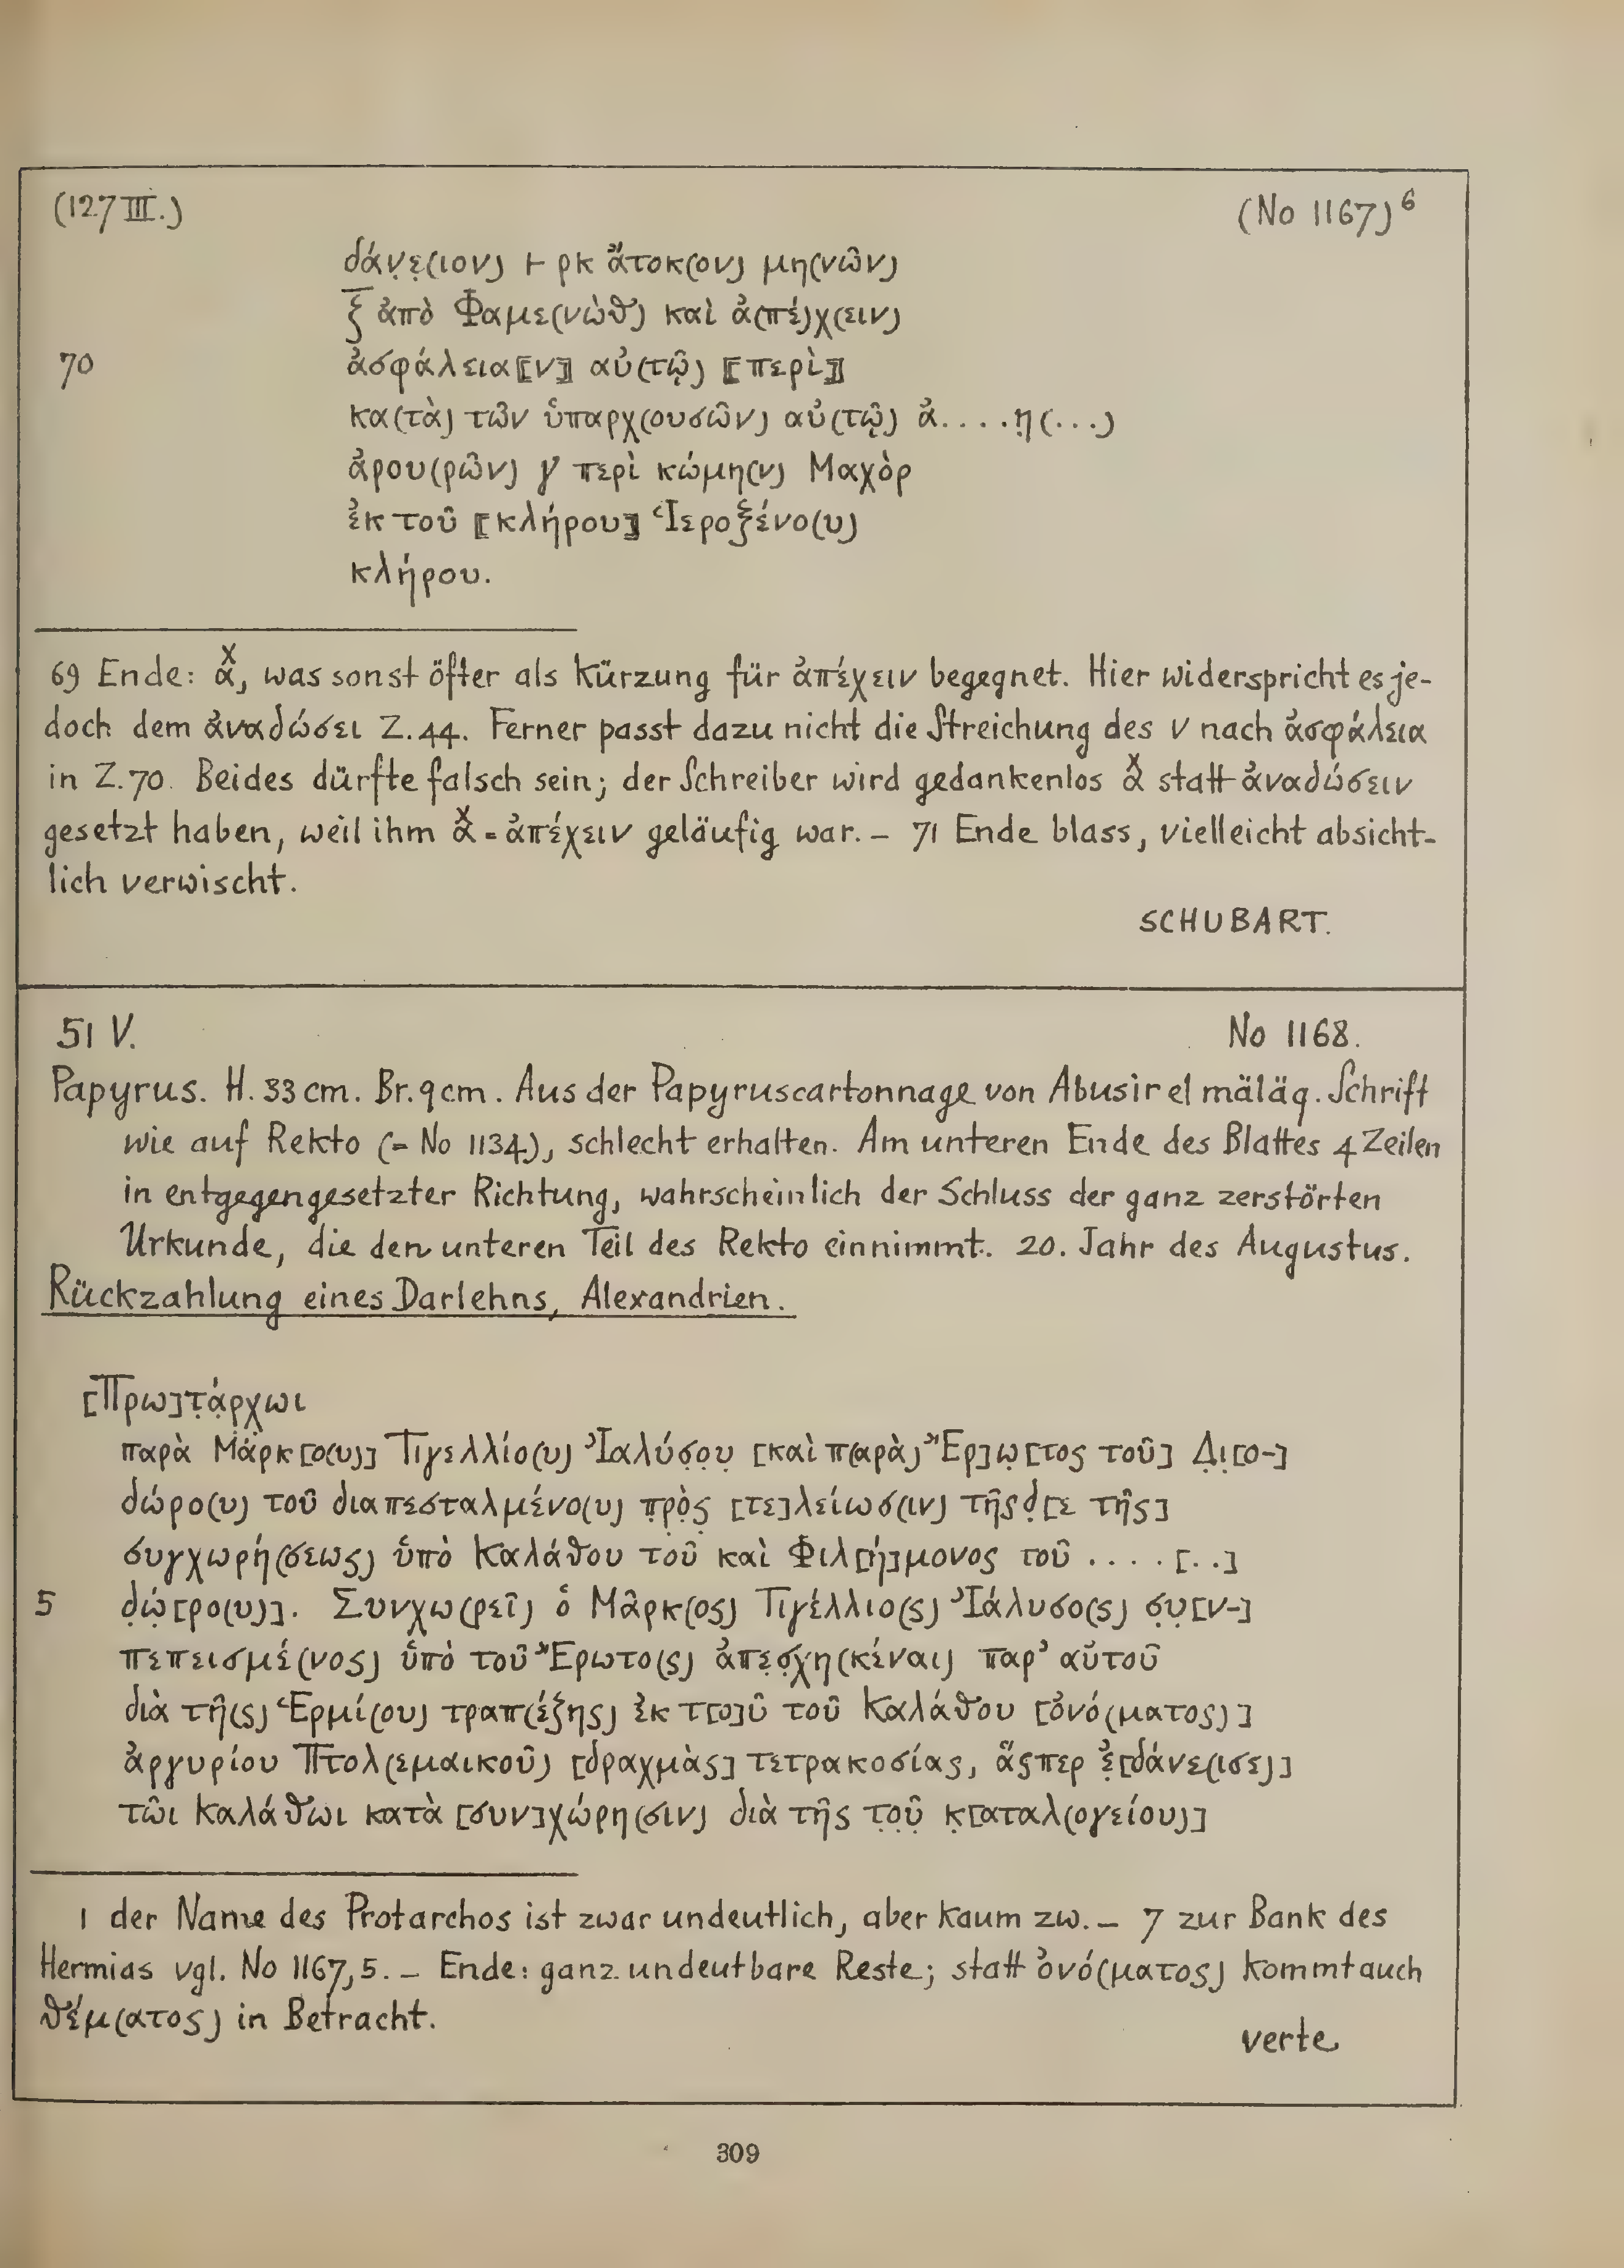 (127 III.) (No 1167)⁶
δάν̣ε̣(ιον) ⊢ ρκ ἄτοκ(ον) μη(νῶν)
ξ̅ ἀπὸ Φαμε(νὼθ) καὶ ἀ(πέ)χ(ειν)
70 ἀσφάλεια⟦ν⟧ αὐ(τῷ) ⟦περὶ⟧
κα(τὰ) τῶν ὑπαρχ(ουσῶν) αὐ(τῷ) ἀ....η̣(...)
ἀρου(ρῶν) γ περὶ κώμη(ν) Μαχὸρ
ἐκ τοῦ ⟦κλήρου⟧ Ἱεροξένο(υ)
κλήρου.
69 Ende: ᾱͯ, was sonst öfter als Kürzung für ἀπέχειν begegnet. Hier widerspricht es je-
doch dem ἀναδώσει Z. 44. Ferner passt dazu nicht die Streichung des ν nach ἀσφάλεια
in Z. 70. Beides dürfte falsch sein; der Schreiber wird gedankenlos αͯ statt ἀναδώσειν
gesetzt haben, weil ihm αͯ = ἀπέχειν geläufig war. – 71 Ende blass, vielleicht absicht-
lich verwischt.
SCHUBART.
51 V. No 1168.
Papyrus. H. 33 cm. Br. 9 cm. Aus der Papyruscartonnage von Abusir el mäläq. Schrift
wie auf Rekto (= No 1134), schlecht erhalten. Am unteren Ende des Blattes 4 Zeilen
in entgegengesetzter Richtung, wahrscheinlich der Schluss der ganz zerstörten
Urkunde, die den unteren Teil des Rekto einnimmt. 20. Jahr des Augustus.
Rückzahlung eines Darlehns, Alexandrien.
[Πρω]τ̣ά̣ρχωι
παρὰ Μάρκ[ο(υ)] Τιγελλίο(υ) Ἰαλύσ̣ο̣υ̣ [καὶ π(αρὰ) Ἔρ]ω̣[τος τοῦ] Δ̣ι̣[ο-]
δώρο(υ) τοῦ διαπεσταλμένο(υ) π̣ρ̣ὸ̣ς̣ [τε]λείωσ(ιν) τῆςδ̣[ε τῆς]
συγχωρή(σεως) ὑπὸ Καλάθου τοῦ καὶ Φιλ[ή]μονος τοῦ .... [..]
5 δ̣ώ̣[ρο(υ)]. Συνχω(ρεῖ) ὁ Μᾶρκ(ος) Τιγέλλιο(ς) Ἰάλυσο(ς) σ̣υ̣[ν-]
πεπεισμέ(νος) ὑπὸ τοῦ Ἔρωτο(ς) ἀπε̣σ̣χη(κέναι) παρ’ αὐτοῦ
διὰ τῆ(ς) Ἑρμί(ου) τραπ(έζης) ἐκ τ[ο]ῦ τοῦ Καλάθου [ὀνό(ματος)]
ἀργυρίου Πτολ(εμαικοῦ) [δραχμὰς] τετρακοσίας, ἅςπερ ἐ̣[δάνε(ισε)]
τῶι Καλάθωι κατὰ [συν]χώρη(σιν) διὰ τῆς τ̣ο̣ῦ̣ κ̣[αταλ(ογείου)]
1 der Name des Protarchos ist zwar undeutlich, aber kaum zw. – 7 zur Bank des
Hermias vgl. No 1167,5. – Ende: ganz undeutbare Reste; statt ὀνό(ματος) kommt auch
θέμ(ατος) in Betracht.
verte
309